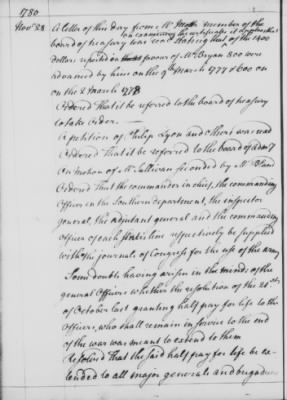 1780
Nov. 28
A letter of this day from member of the
on examining the certificates it appears that
board of treasury was read stating that of the 1400
dollars reported in favor of Mr Bryan 800 were
advanced by him on the 9th March 1777 & 600 on
on the 2 March 1778
Ordered That it be referred to the board of treasury
to take order.
A petition of Philip Lyon and others was read
Ordered That it be referred to the board of adm'y
On motion of Mr Sullivan seconded by Mr
Ordered That the commander in chief, the commanding
Officer in the Southern department, the inspector
general, the adjutant general and the commanding
officer of each state line respectively be supplied
with the journals of Congress for the use of the army
Some doubts having arisen in the minds of the
general Officers whether the resolution of the 21 st.
of October last granting half pay for life to the
Officers, who shall remain in service to the end
of the war was meant to extend to them
Resolved That the said half pay for life be ex-
tended to all major generals and brigadier